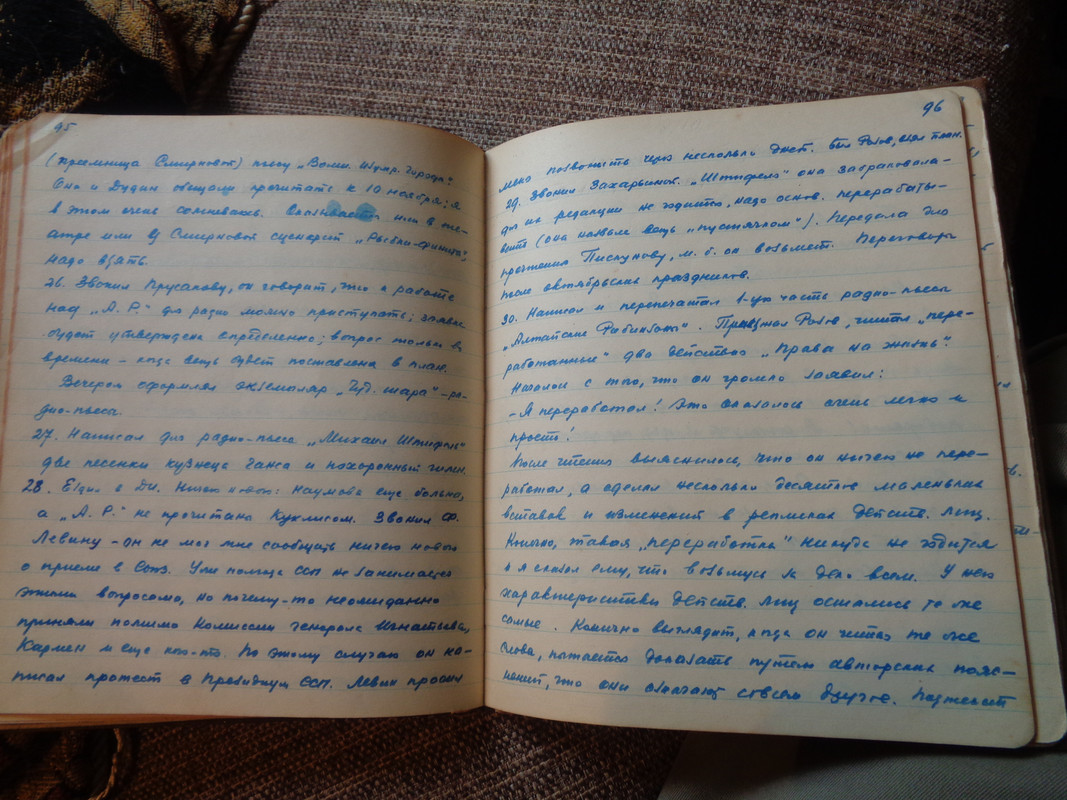 95
(преемница Смирновой) пьесу „Волш.
Она и Дудин обещали прочитать к 10 ноября; я
в этом очень сомневаюсь. Оказывается или в те-
атре или у Смирновой сценарий „Рыбки-финита",
надо взять.
26. Звонил Прусакову, он говорит, что к работе
над „А. Р." для радио можно приступать; заявка
будет утверждена определенно; вопрос только во
времени – когда вещь будет поставлена в план.
Вечером оформлял экземпляр „Чуд. шара" – ра-
дио-пьеса.
27. Написал для радио-пьесы „Михаил Штифель"
две песенки кузнеца Ганса и похоронный гимн.
28. Ездил в ДИ. Ничего нового: Наумова еще больна,
а „А. Р." не прочитана Куклисом. Звонил Ф.
Левину – он не мог мне сообщить ничего нового
о приеме в Союз. Уже полгода ССП не занимается
этими вопросами, но почему-то неожиданно
приняли помимо Комиссии генерала Игнатьева,
Кармен и еще кого-то. По этому случаю он на-
писал протест в Президиум ССП. Левин просил
96
меня позвонить через несколько дней. Был Розов,
29. Звонил Захарьиной. „Штифель" она забраковала –
для их редакции не годится, надо основ. перерабаты-
вать (она назвала вещь „пустячком"). Передала это
Пискунову, м. б. он возьмет. Переговоры
после октябрьских праздников.
30. Написал и перепечатал 1-ую часть радио-пьесы
„Алтайские Робинзоны". Приезжал Розов, читал „пере-
работанные" два действия „Права на жизнь".
Началось с того, что он громко заявил:
– Я переработал! Это оказалось очень легко и
просто!
После чтения выяснилось, что он ничего не пере-
работал, а сделал несколько десятков маленьких
вставок и изменений в репликах действ. лиц.
Конечно, такая „переработка" никуда не годится
и я сказал ему, что возьмусь за дело всем. У него
характеристики действ. лиц остались те же
самые. Конечно выглядит, когда он читая те же
слова, пытается доказать путем авторских пояс-
нений, что они означают совсем другое.